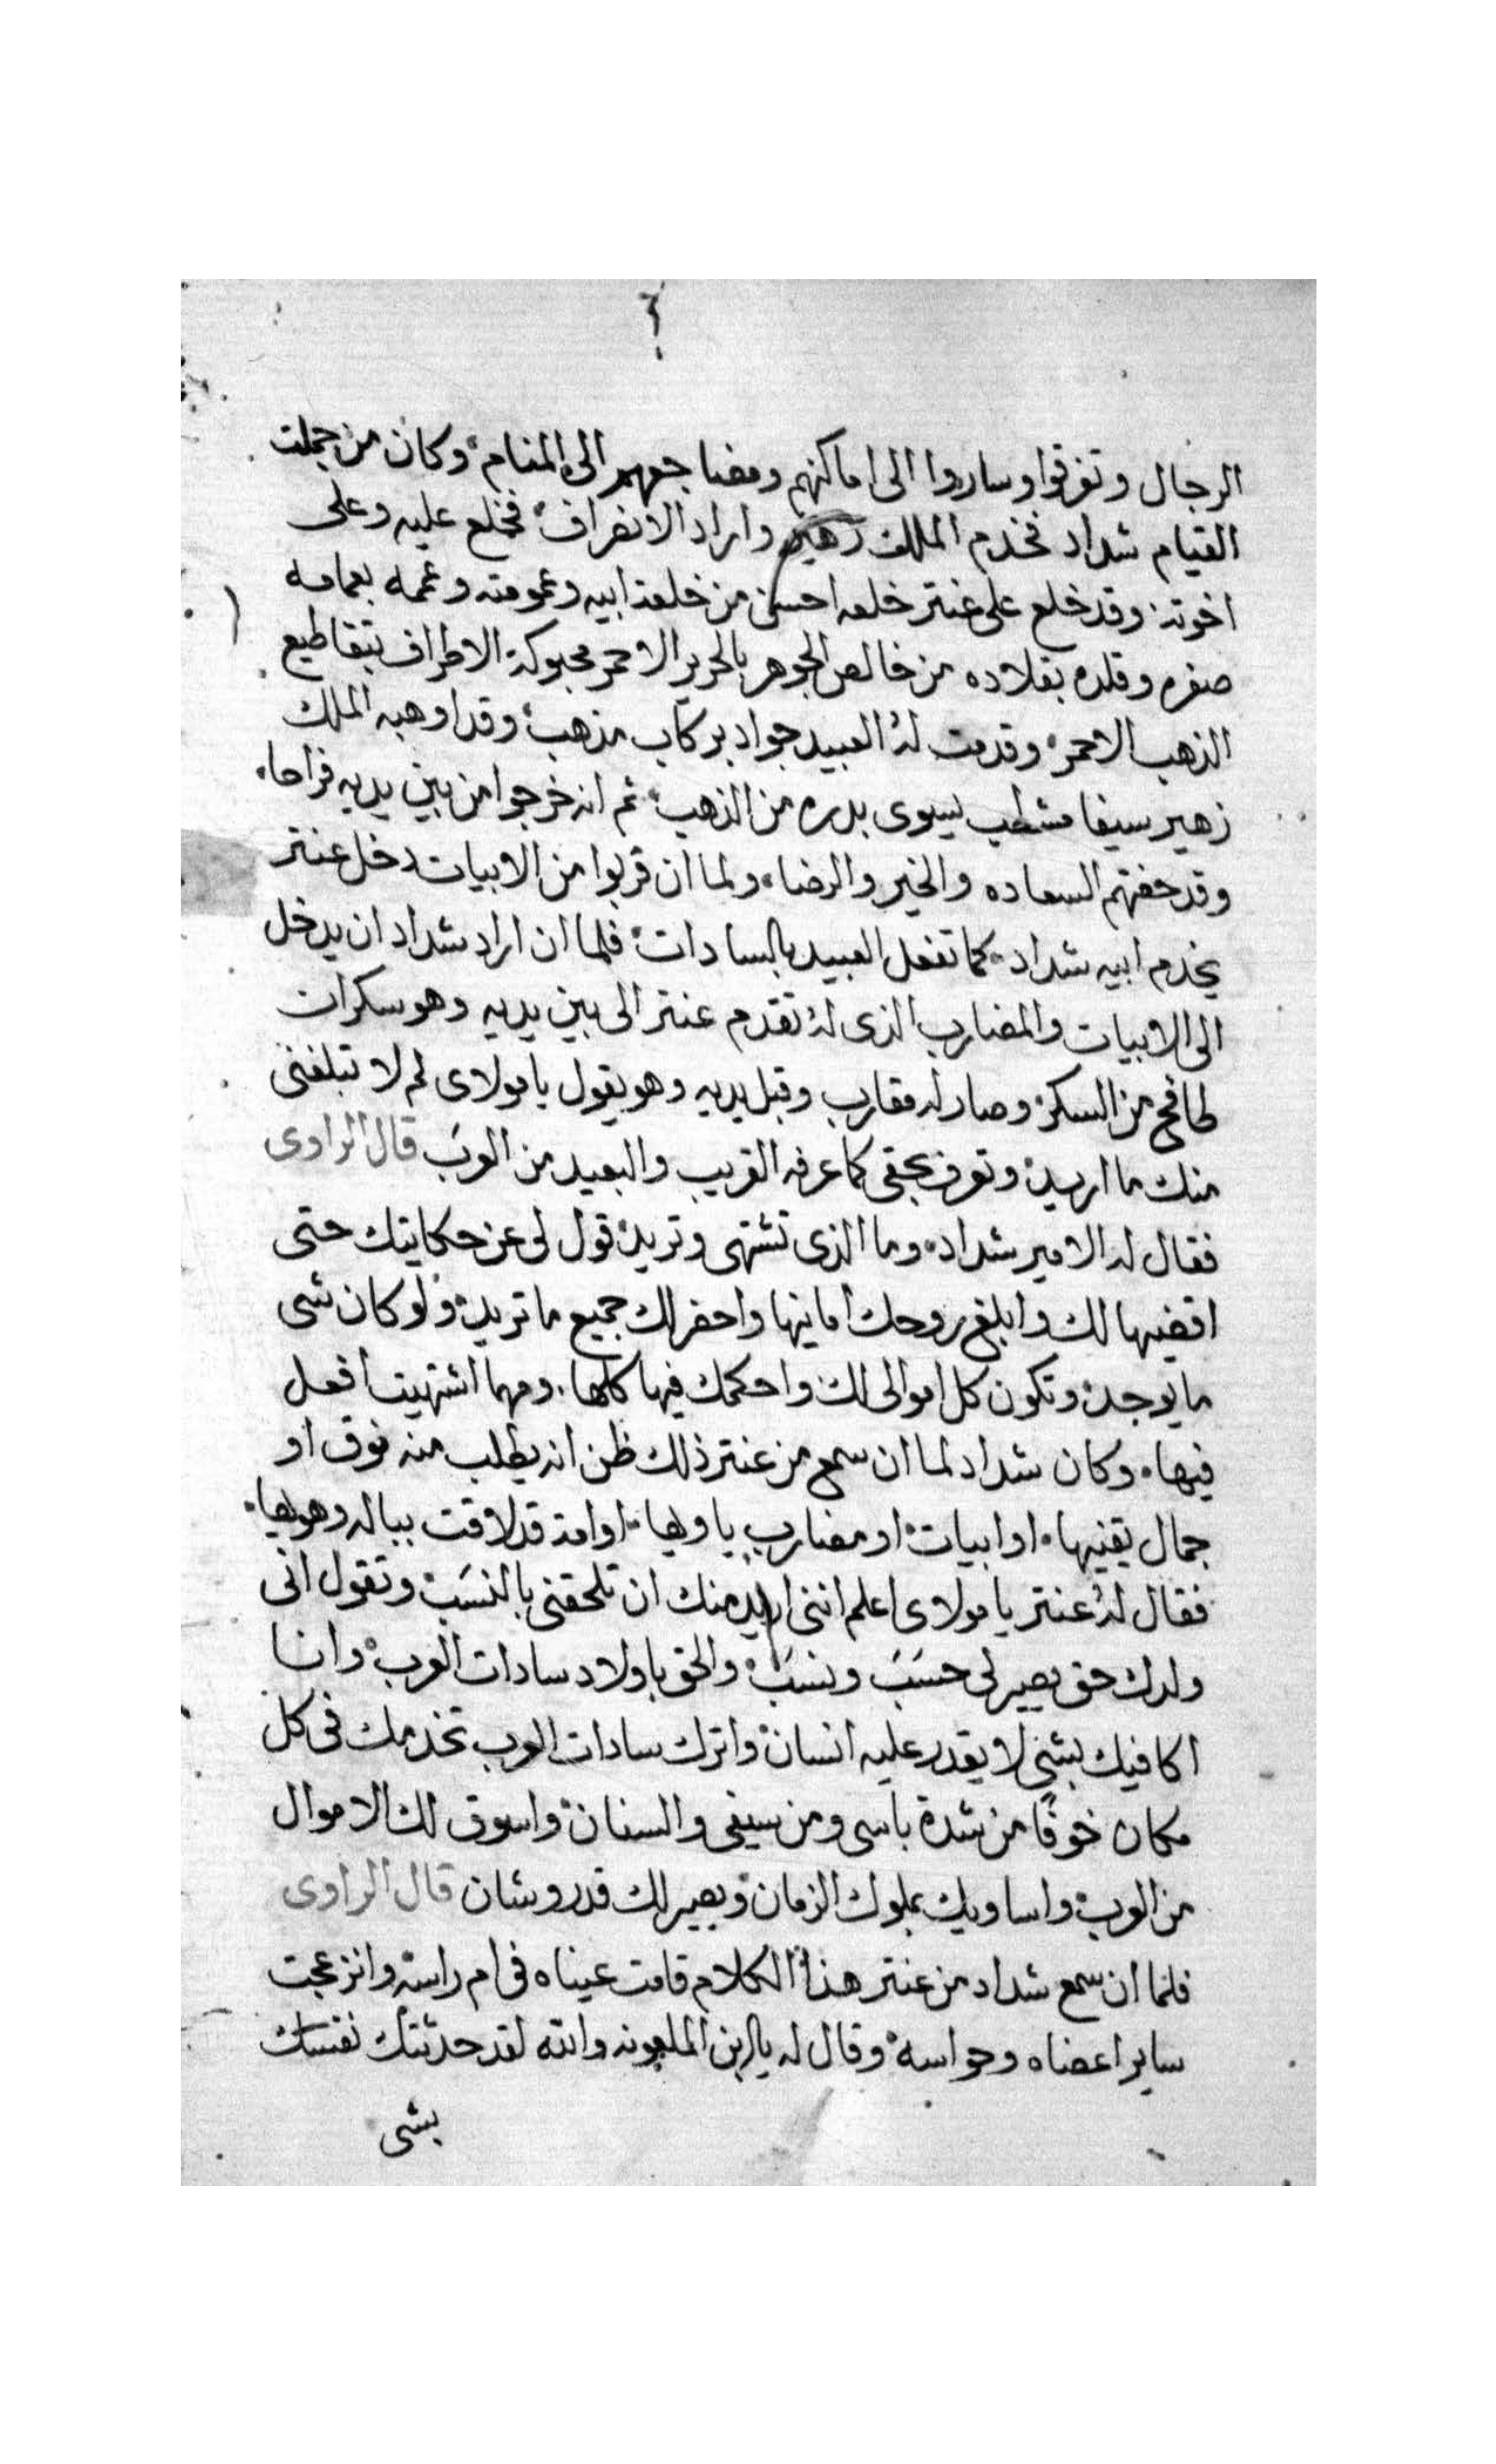 الرجال وتفرقوا وساروا الى اماكنهم ومضاجعهم الى المنام وكان من جملت
القيام شداد فخدم الملك زهير واراد الانصراف فخلع عليه وعلى
اخوته وقد خلع على عنتر خلعه احسن من خلعة ابيه وعمومته وعممه بعمامه
صفره وقلده بقلاده من خالص الجوهر بالحرير الاحمر محبوكة الاطراف بتقاطيع
الذهب الاحمر وقدمت له العبيد جواد بركاب مذهب وقد اوهبه الملك
زهير سيفا مشطب يسوى بدره من الذهب ثم انه خرجوا من بين يديه فراحا
وقد حفتهم السعاده والخير والرضا ولما ان قربوا من الابيات دخل عنتر
يخدم ابيه شداد كما تفعل العبيد بالسادات فلما ان اراد شداد ان يدخل
الى الابيات والمضارب الذى له تقدم عنتر الى بين يديه وهو سكران
طافح من السكر وصار له مقارب وقبل يديه وهو يقول يا مولاى لم لا تبلغنى
منك ما اريد وتعرف بحقى كما عرفه القريب والبعيد من العرب قال الراوى
فقال له الامير شداد وما الذى تشتهى وتريد قول لى عن حكايتك حتى
اقضيها لك وابلغ روحك امانيها واحضر لك جميع ما تريد ولو كان شى
ما يوجد وتكون كل اموالى لك واحكمك فيها كلها ومهما اشتهيت افعل
فيها وكان شداد لما ان سمع من عنتر ذلك ظن انه يطلب منه نوق او
جمال يقنيها او ابيات او مضارب ياويها او امة قد لاقت بباله وهويها
فقال له عنتر يا مولاى اعلم اننى اريد منك ان تلحقنى بالنسب وتقول انى
ولدك حق يصير لى حسب ونسب والحق باولاد سادات العرب وانا
اكافيك بشئ لا يقدر عليه انسان واترك سادات العرب تخدمك فى كل
مكان خوفا من شدة باسى ومن سيفى والسنان واسوق لك الاموال
من العرب واساويك بملوك الزمان ويصير لك قدر وشان قال الراوى
فلما ان سمع شداد من عنتر هذا الكلام قامت عيناه فى ام راسه وانزعجت
ساير اعضاه وحواسه وقال له يا ابن الملعونه والله لقد حدثتك نفسك
بشى